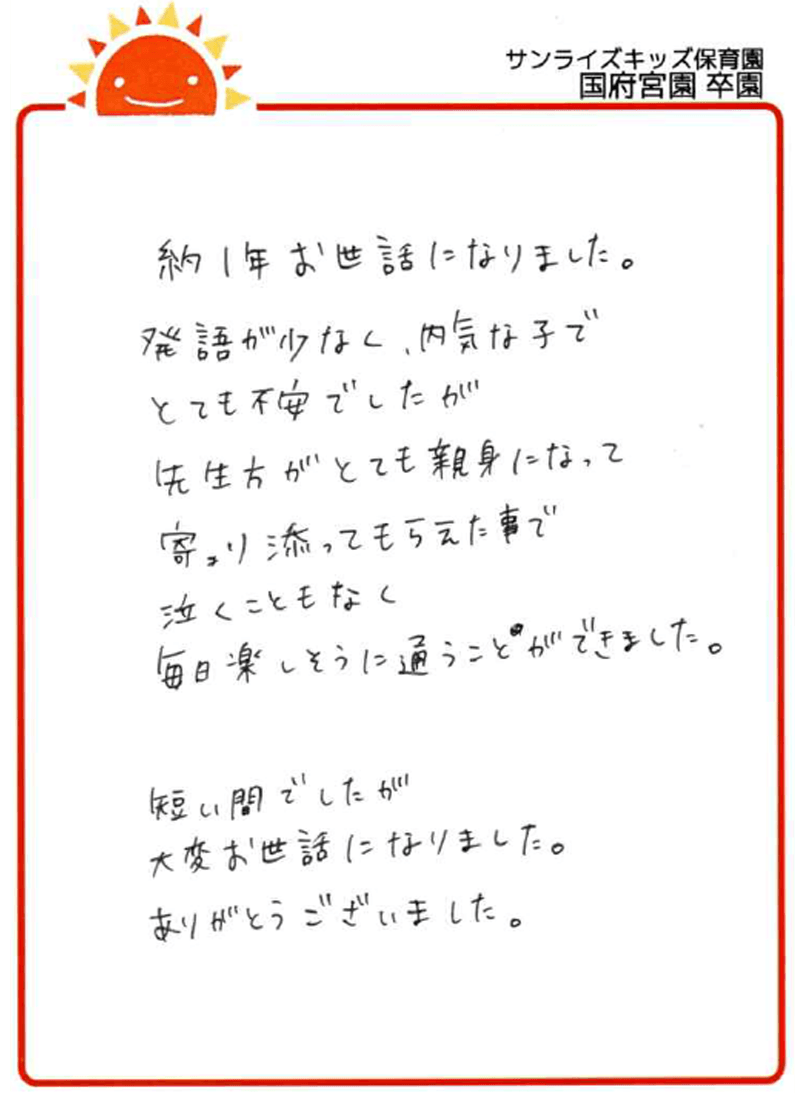 サンライズキッズ保育園
国府宮園 卒園
約1年お世話になりました。
発語が少なく、内気な子で
とても不安でしたが
先生方がとても親身になって
寄り添ってもらえた事で
泣くこともなく
毎日楽しそうに通うことができました。
短い間でしたが
大変お世話になりました。
ありがとうございました。